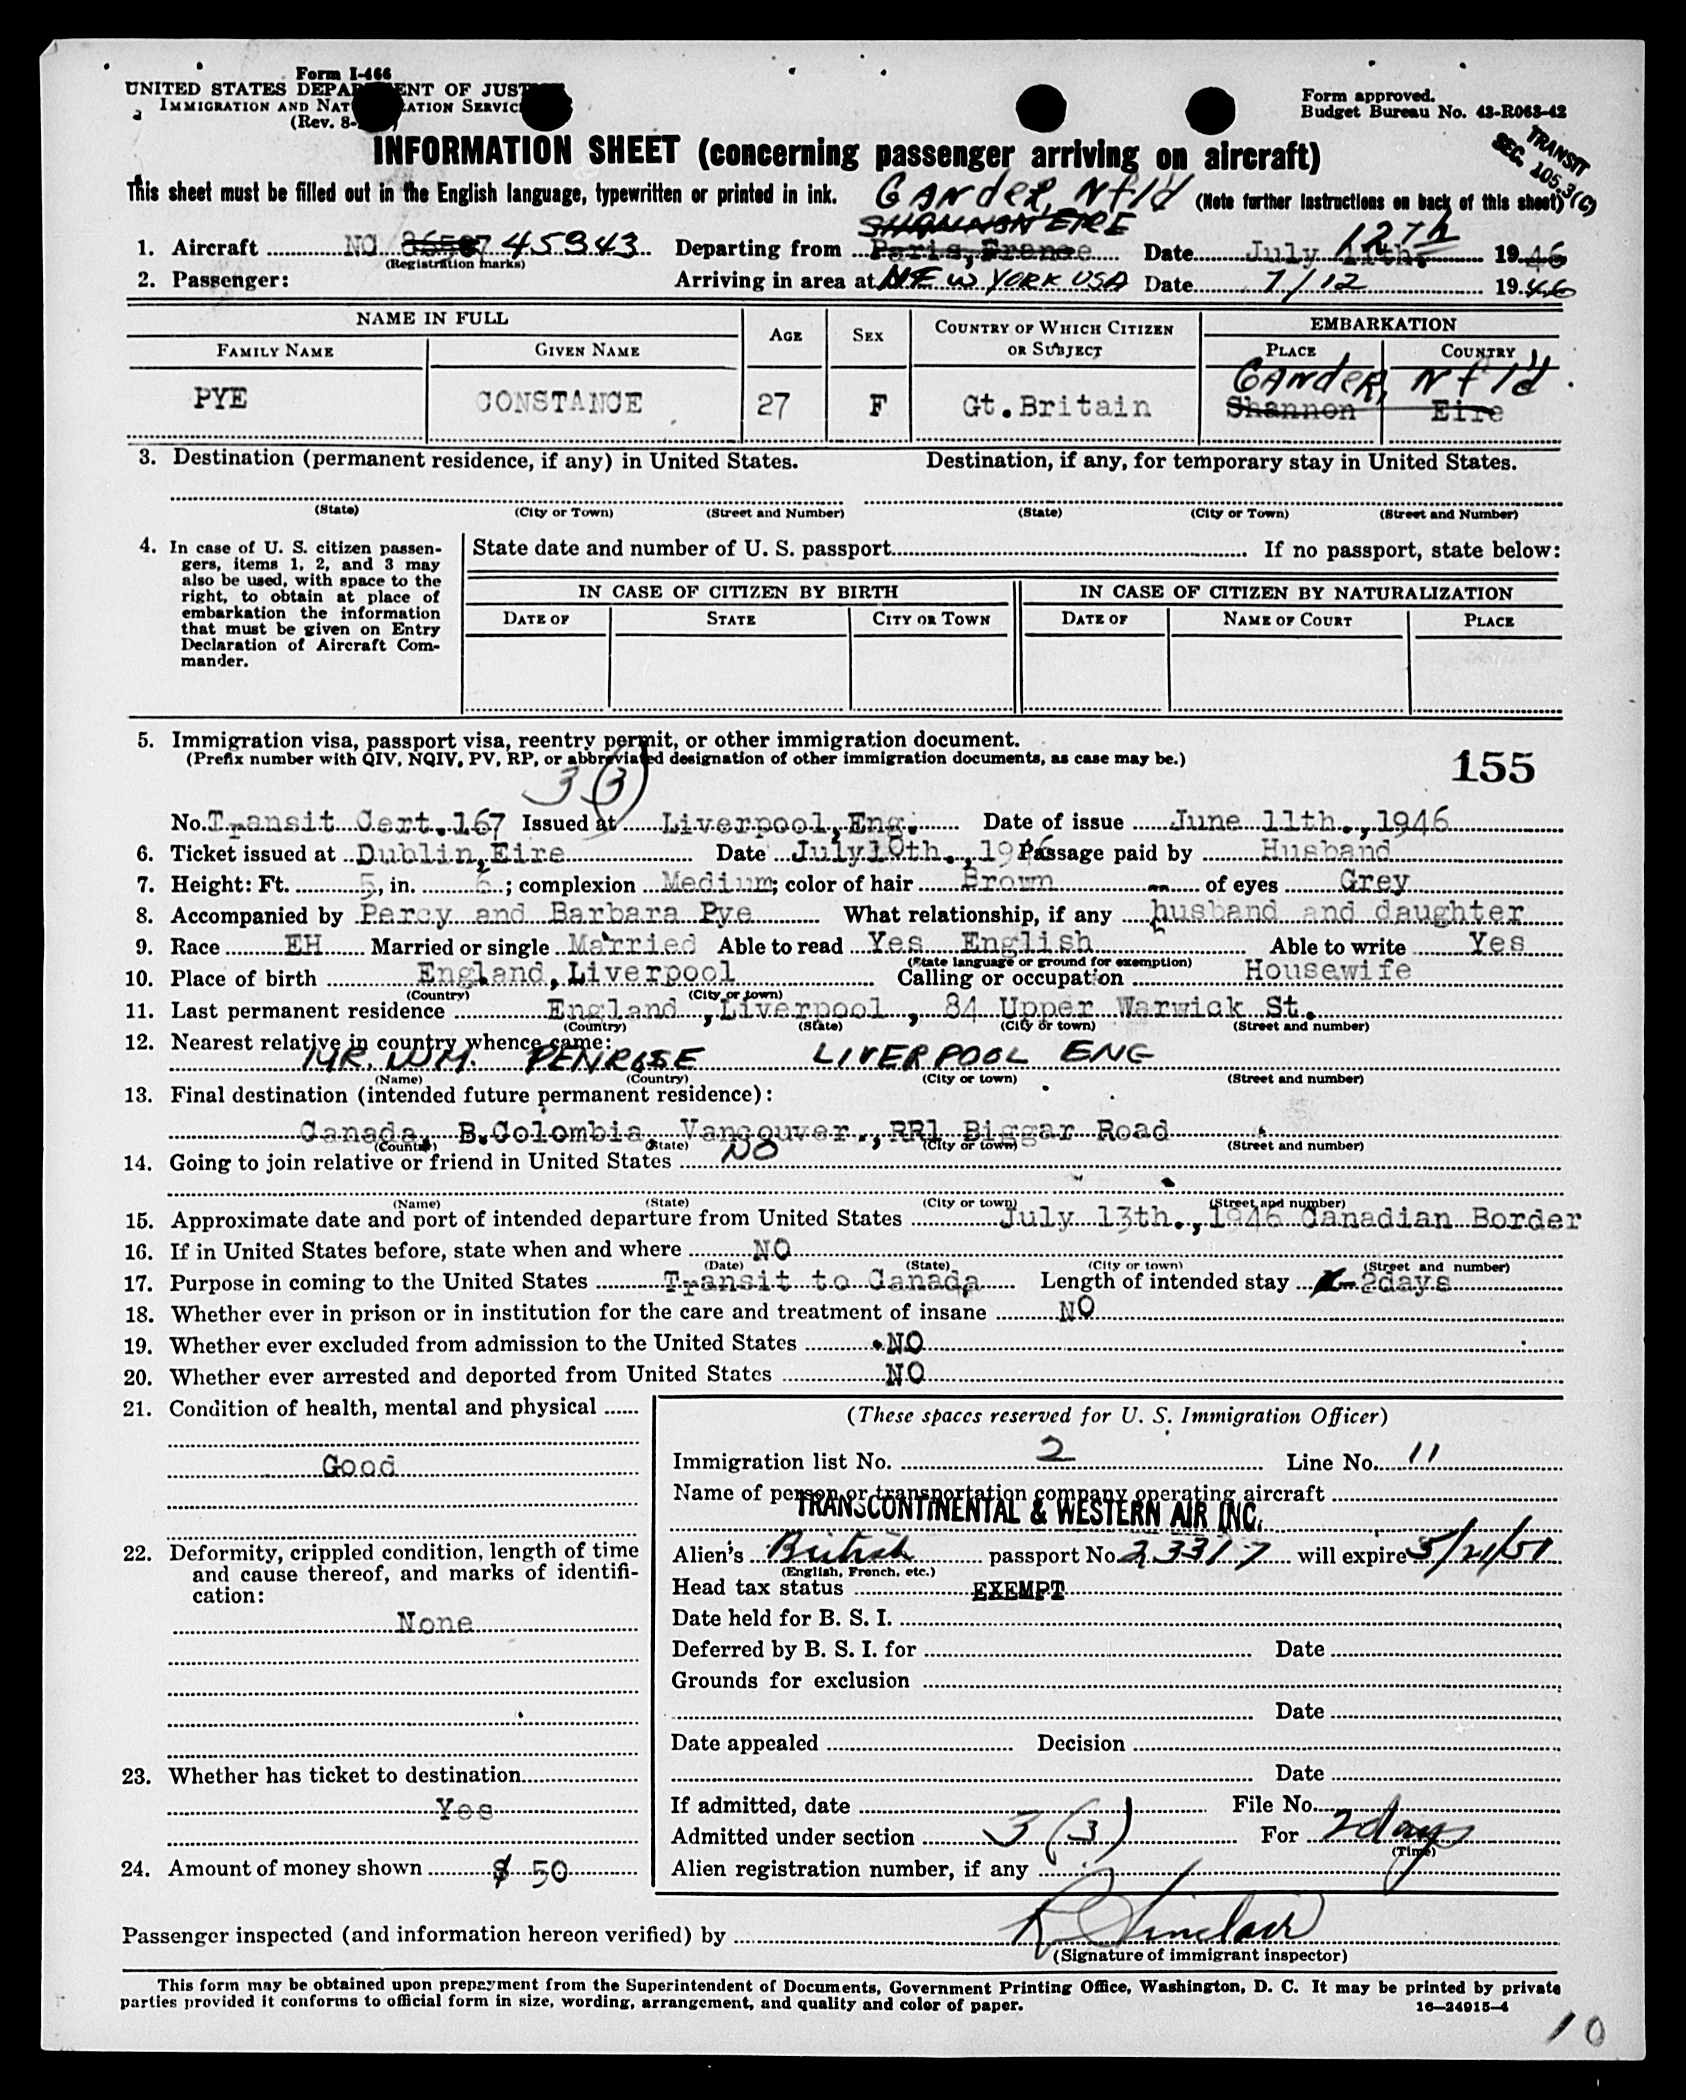 Form I-466
UNITED STATES DEPA ENT OF JUST
IMMIGRATION AND NAT ATION SERVIC
(Rev. 8-
Form approved.
Budget Bureau No. 43-R063-42
TRANSIT
SEC. 105.3(C)
INFORMATION SHEET (concerning passenger arriving on aircraft)
This sheet must be filled out in the English language, typewritten or printed in ink. GANDER, Nfld (Note further instructions on back of this sheet)
SHANNON EIRE
1. Aircraft NC 86507 45343 Departing from Paris, France Date July 11th. 12th 1946
(Registration marks)
2. Passenger: Arriving in area at NEW YORK USA Date 7/12 1946
NAME IN FULL AGE SEX COUNTRY OF WHICH CITIZEN OR SUBJECT EMBARKATION
FAMILY NAME GIVEN NAME PLACE COUNTRY
GANDER, Nfld.
PYE CONSTANCE 27 F Gt.Britain Shannon Eire
3. Destination (permanent residence, if any) in United States. Destination, if any, for temporary stay in United States.
(State) (City or Town) (Street and Number) (State) (City or Town) (Street and Number)
4. In case of U. S. citizen passen-
gers, items 1, 2, and 3 may
also be used, with space to the
right, to obtain at place of
embarkation the information
that must be given on Entry
Declaration of Aircraft Com-
mander.
State date and number of U. S. passport If no passport, state below:
IN CASE OF CITIZEN BY BIRTH IN CASE OF CITIZEN BY NATURALIZATION
DATE OF STATE CITY OR TOWN DATE OF NAME OF COURT PLACE
5. Immigration visa, passport visa, reentry permit, or other immigration document.
(Prefix number with QIV, NQIV, PV, RP, or abbreviated designation of other immigration documents, as case may be.)
155
3(3)
No. Transit Cert. 167 Issued at Liverpool, Eng. Date of issue June 11th., 1946
6. Ticket issued at Dublin, Eire Date July 10th., 1946 Passage paid by Husband
7. Height: Ft. 5, in. 6; complexion Medium; color of hair Brown of eyes Grey
8. Accompanied by Percy and Barbara Pye What relationship, if any husband and daughter
9. Race EH Married or single Married Able to read Yes English Able to write Yes
(State language or ground for exemption)
10. Place of birth England, Liverpool Calling or occupation Housewife
(Country) (City or town)
11. Last permanent residence England, Liverpool, 84 Upper Warwick St.
(Country) (State) (City or town) (Street and number)
12. Nearest relative in country whence came:
MR. WM. PENROSE LIVERPOOL ENG
(Name) (Country) (City or town) (Street and number)
13. Final destination (intended future permanent residence):
Canada, B.Colombia, Vancouver., RR1 Biggar Road
(Country) (State) (City or town) (Street and number)
14. Going to join relative or friend in United States NO
(Name) (State) (City or town) (Street and number)
15. Approximate date and port of intended departure from United States July 13th., 1946 Canadian Border
16. If in United States before, state when and where NO
(Date) (State) (City or town) (Street and number)
17. Purpose in coming to the United States Transit to Canada Length of intended stay 2days
18. Whether ever in prison or in institution for the care and treatment of insane NO
19. Whether ever excluded from admission to the United States NO
20. Whether ever arrested and deported from United States NO
21. Condition of health, mental and physical
Good
22. Deformity, crippled condition, length of time
and cause thereof, and marks of identifi-
cation:
None
23. Whether has ticket to destination
Yes
24. Amount of money shown $ 50
(These spaces reserved for U. S. Immigration Officer)
Immigration list No. 2 Line No. 11
Name of person or transportation company operating aircraft
TRANSCONTINENTAL & WESTERN AIR INC.
Alien's British passport No. 23317 will expire 5/21/51
(English, French, etc.)
Head tax status EXEMPT
Date held for B. S. I.
Deferred by B. S. I. for Date
Grounds for exclusion
Date
Date appealed Decision
Date
If admitted, date File No.
Admitted under section 3(3) For 2 days
(Time)
Alien registration number, if any
Passenger inspected (and information hereon verified) by R Sinclair
(Signature of immigrant inspector)
This form may be obtained upon prepayment from the Superintendent of Documents, Government Printing Office, Washington, D. C. It may be printed by private
parties provided it conforms to official form in size, wording, arrangement, and quality and color of paper. 16—24915-4
10